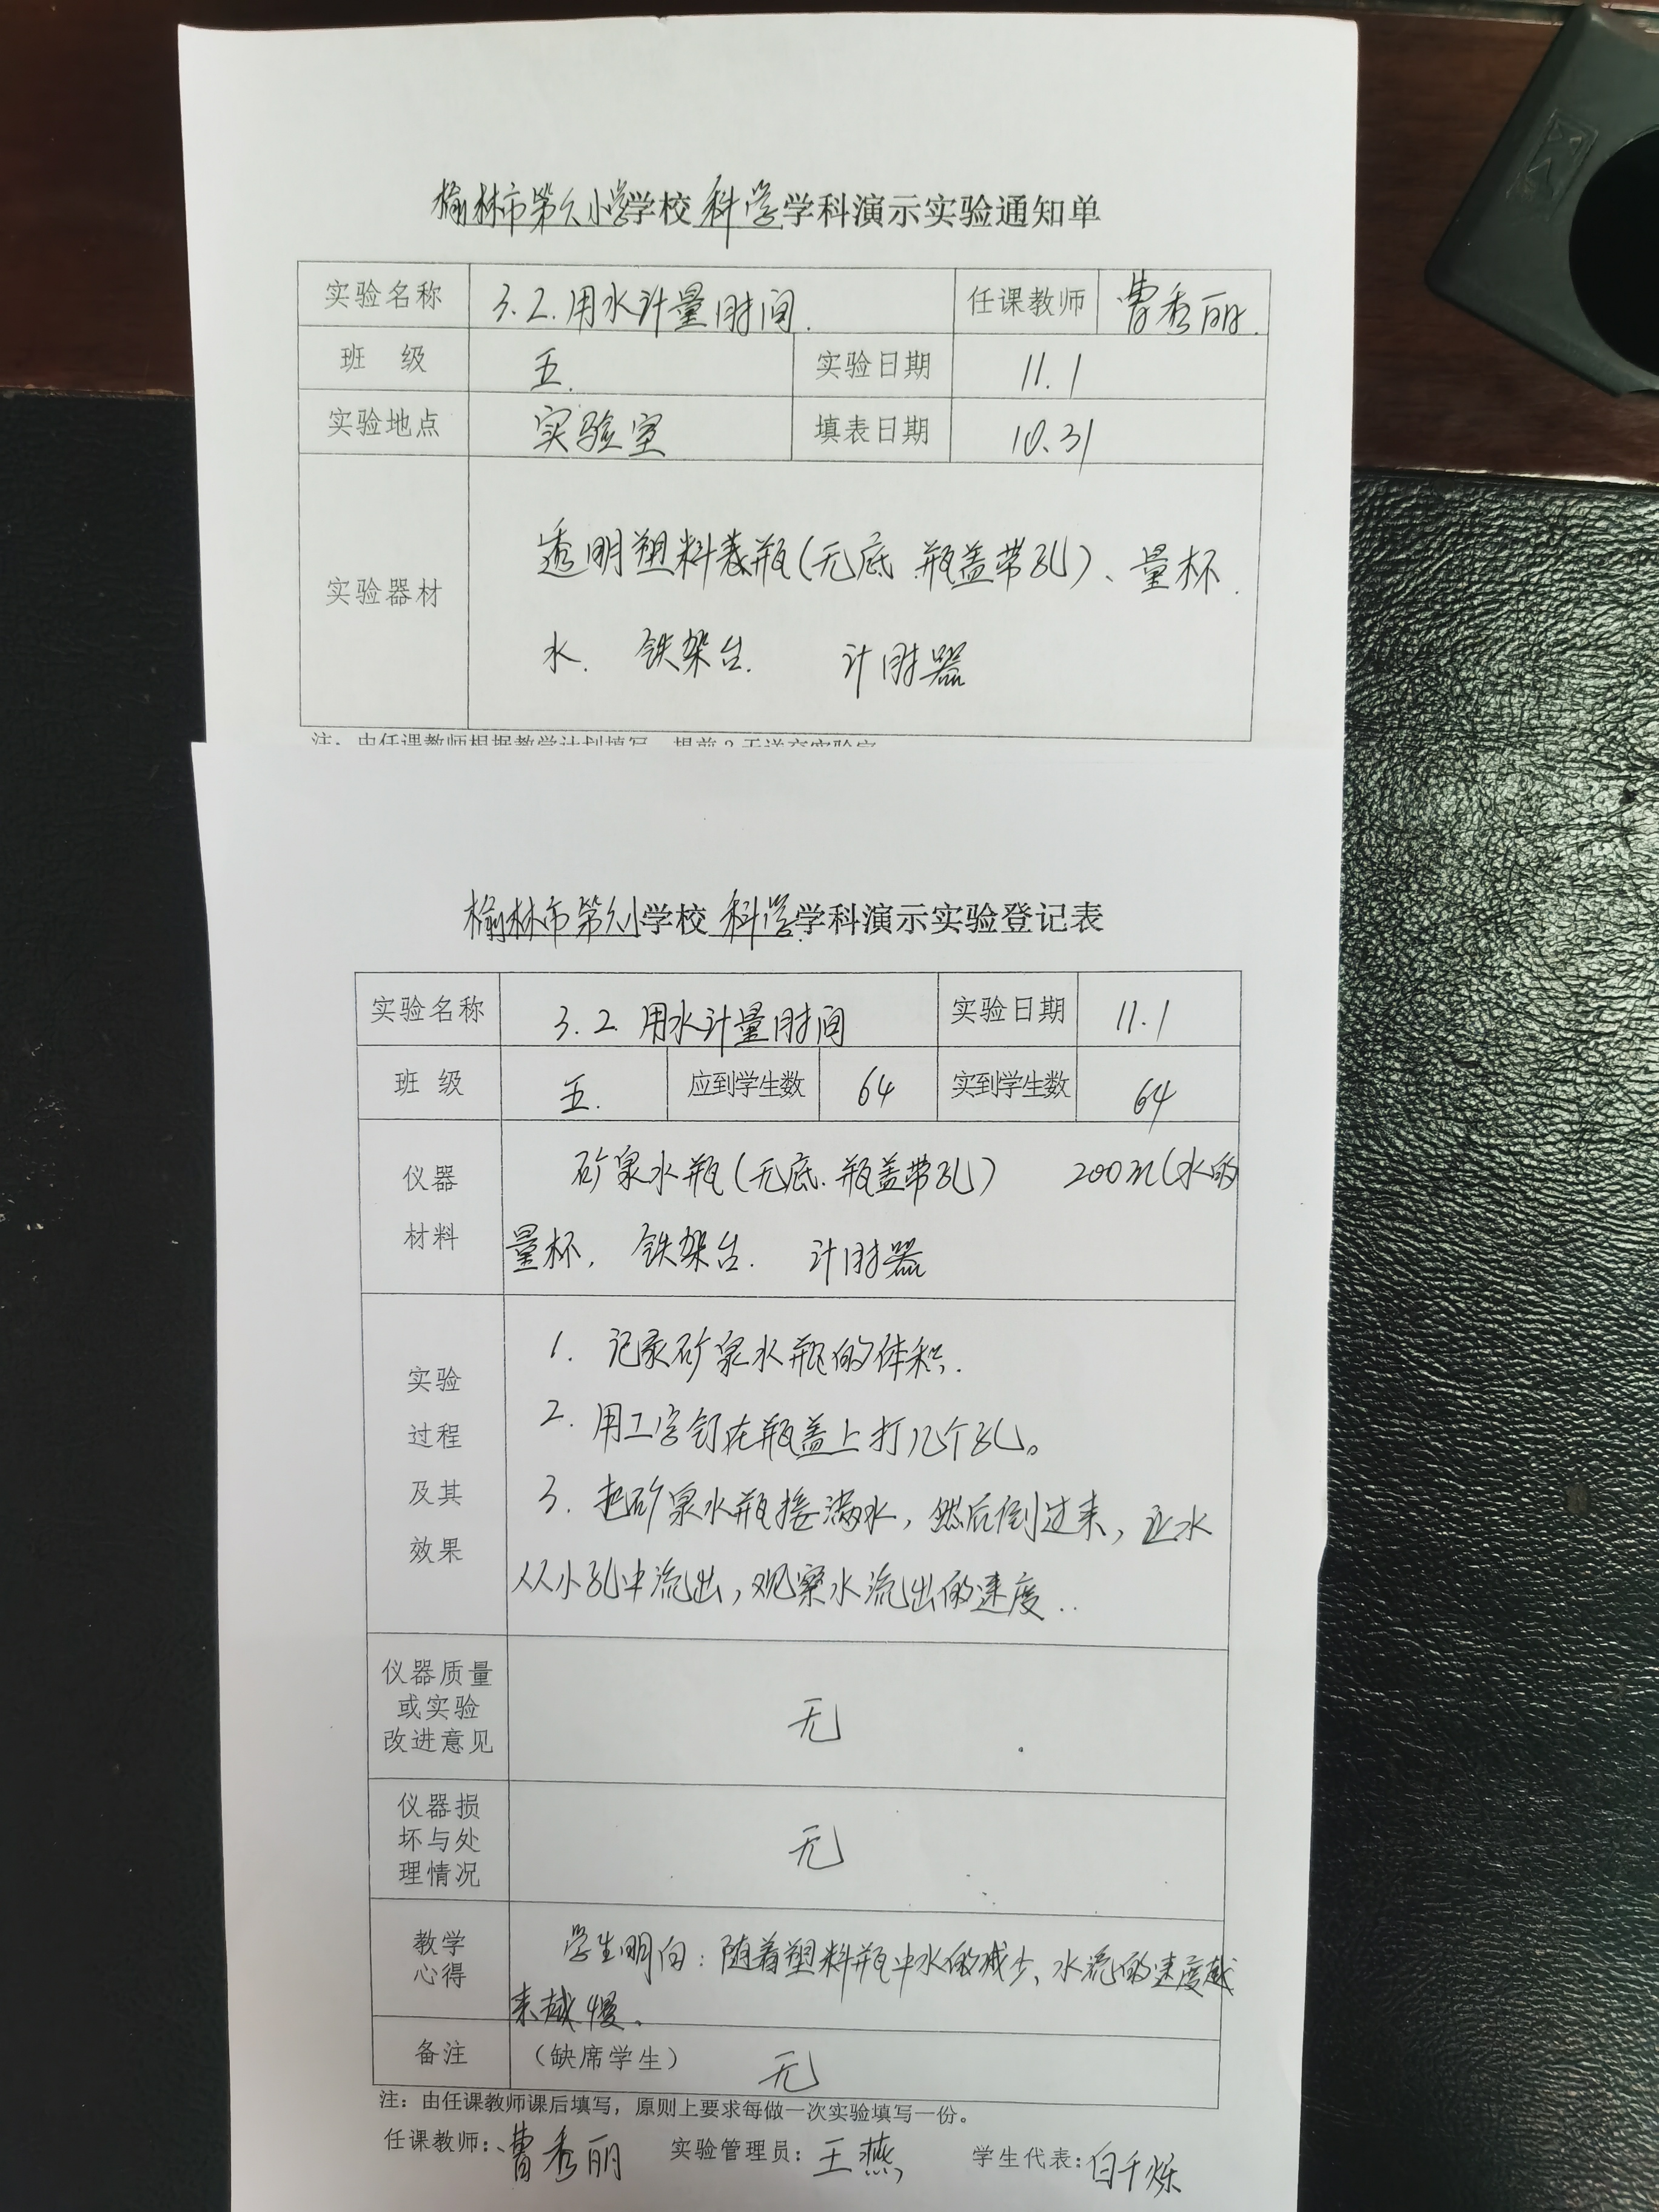 榆林市第九小学学校 科学 学科演示实验通知单
实验名称 3.2.用水计量时间. 任课教师 曹秀丽.
班 级 五. 实验日期 11.1
实验地点 实验室 填表日期 10.31
透明塑料瓶(无底 瓶盖带孔)、量杯.
实验器材
水. 铁架台. 计时器
注：由任课教师根据教学计划填写，提前2天送交实验室
榆林市第九小学校 科学 学科演示实验登记表
实验名称 3.2 用水计量时间 实验日期 11.1
班 级 五. 应到学生数 64 实到学生数 64
仪器 矿泉水瓶(无底.瓶盖带孔) 200ml水的
材料 量杯, 铁架台. 计时器
1. 记录矿泉水瓶的体积.
实验
2. 用工字钉在瓶盖上打几个孔。
过程
及其 3. 把矿泉水瓶接满水,然后倒过来,让水
效果
从小孔中流出,观察水流出的速度..
仪器质量
或实验 无
改进意见
仪器损
坏与处 无
理情况
教学 学生明白:随着塑料瓶中水的减少、水流的速度越
心得
来越慢。
备注 （缺席学生） 无
注：由任课教师课后填写，原则上要求每做一次实验填写一份。
任课教师: 曹秀丽 实验管理员: 王燕 学生代表: 白千烁